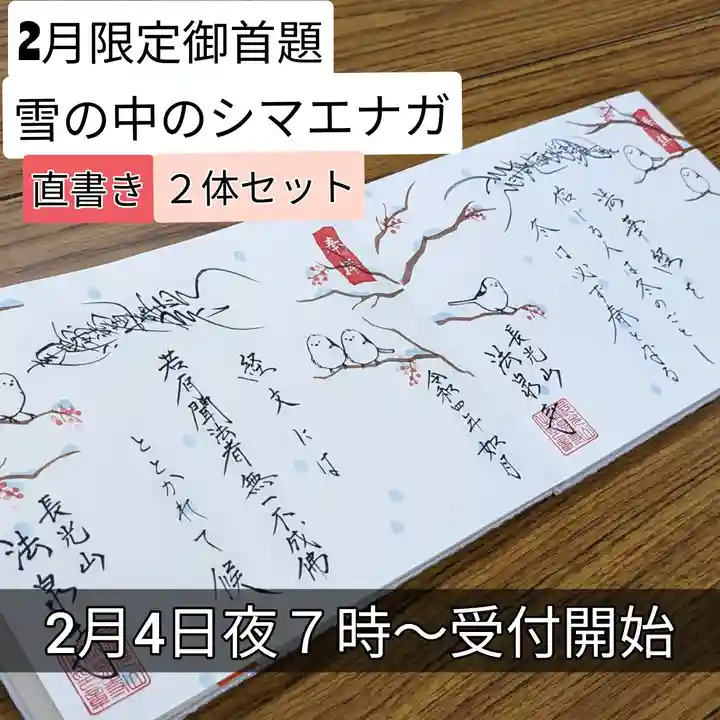 2月限定御首題
雪の中のシマエナガ
直書き
２体セット
奉拝
法華経を
信じる人は冬のごとし
冬は必ず春となる
長光山
法泉寺
令和四年如月
奉拝
経文には
若有聞法者無一不成佛
ととかれて候
長光山
法泉寺
2月4日夜７時～受付開始